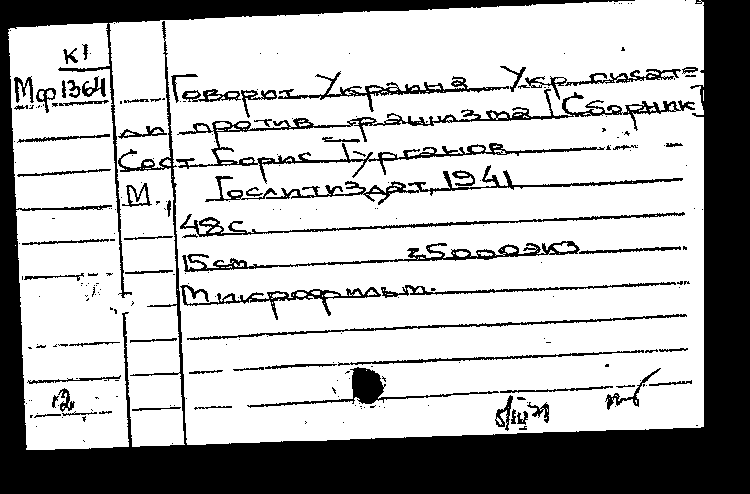 К1
Мф1364
Говорит Украина Укр. писате-
ли против фашизма [Сборник]
Сост. Борис Турганов.
М., Гослитиздат, 1941
48с.
15см. 25000экз
Микрофильм.
12